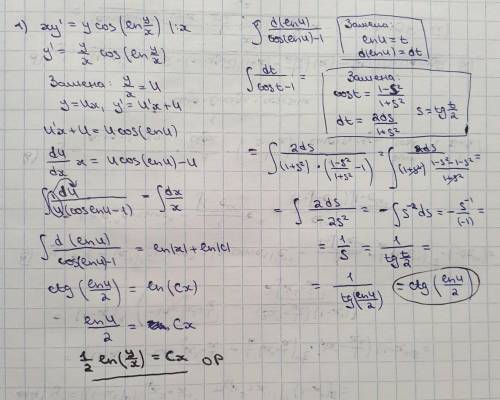 1) xy' = y cos(ln y/x) |:x
y' = y/x cos(ln y/x)
Замена: y/x = u
y = ux, y' = u'x + u
u'x + u = u cos(ln u)
du/dx x = u cos(ln u) - u
∫ du/(u(cos ln u - 1)) = ∫ dx/x
∫ d(ln u)/(cos(ln u) - 1) = ln|x| + ln|c|
ctg(ln u/2) = ln(Cx)
ln u/2 = Cx
1/2 ln(y/x) = Cx ОР
∫ d(ln u)/(cos(ln u) - 1)
Замена:
ln u = t
d(ln u) = dt
∫ dt/(cos t - 1) =
Замена:
cos t = (1-s²)/(1+s²)
s = tg t/2
dt = 2ds/(1+s²)
= ∫ 2ds/((1+s²)·((1-s²)/(1+s²) - 1)) = ∫ 2ds/((1+s²)·(1-s²-1-s²)/(1+s²))
= ∫ 2ds/(-2s²) = -∫ s⁻² ds = - s⁻¹/(-1) =
= 1/s = 1/(tg t/2) =
= 1/(tg(ln u/2)) = ctg(ln u/2)